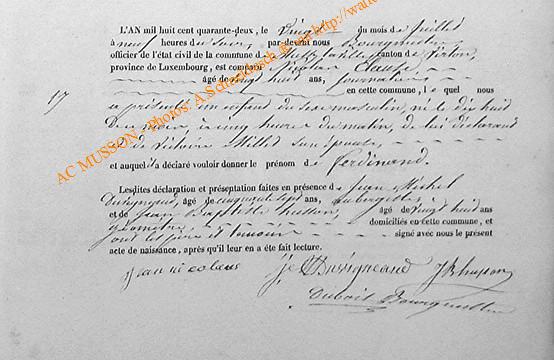 L'AN mil huit cent quarante-deux, le Vingt du mois de Juillet
à neuf heures du soir, par-devant nous Bourgmestre
officier de l'état civil de la commune de canton de Virton,
province de Luxembourg, est comparu Nicolas
âgé de vingt huit ans, journalier
17 en cette commune, lequel nous
a présenté un enfant de sexe masculin, né le dix huit
Du mois, à cinq heures du matin, de lui déclarant
et de Victoire Millet son épouse,
et auquel il a déclaré vouloir donner le prénom de Ferdinand.
Lesdites déclaration et présentation faites en présence de Jean Michel
âgé de cinquante sept ans, aubergiste
et de Jean Baptiste husson, âgé de Vingt huit ans
géomètre, domiciliés en cette commune, et
ont les père et témoins signé avec nous le présent
acte de naissance, après qu'il leur en a été fait lecture.
JB husson
Dubois Bourgmestre
AC MUSSON - Photos: A.Scharlebach @ http://